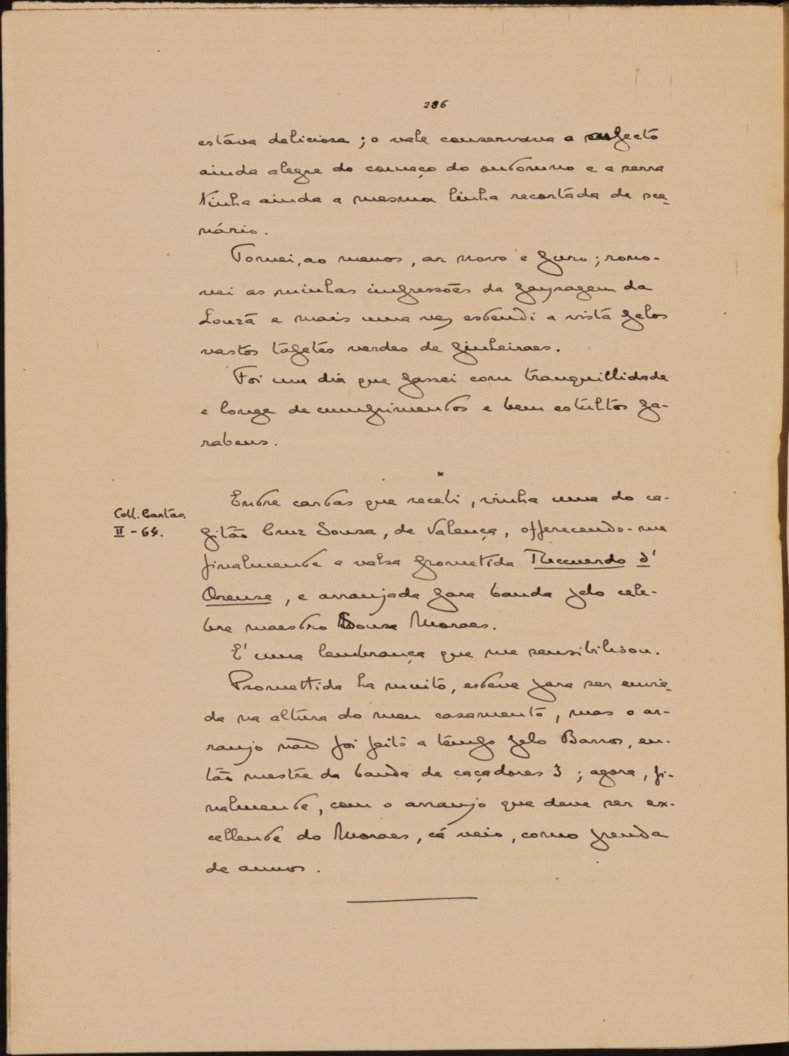 286
estáva deliciosa; o vale conservava o aspecto
ainda alegre do começo do outomno e a serra
tinha ainda a mesma linha recortáda de sce-
nário.
Tomei, ao menos, ar novo e puro; reno-
vei as minhas impressões da paysagem da
Louzã e mais uma vez estendi a vista pelos
vastos tapetes verdes de pinheiraes.
Foi um dia que passei com tranquillidade
e longe de cumprimentos e bem estultos pa-
rabens.
*
Entre cartas que recebi, vinha uma do ca-
Coll. Cartas.
II - 64.
pitão Cruz Sousa, de Valença, offerecendo-me
finalmente a valsa promettida Recuerdo d'
Orense, e arranjada para banda pelo cele-
bre maestro Sousa Moraes.
E' uma lembrança que me sensibilisou.
Promettida ha muito, esteve para ser envia-
da na altura do meu casamento, mas o ar-
ranjo não foi feito a tempo pelo Barros, en-
tão mestre da banda de caçadores 3; agora, fi-
nalmente, com o arranjo que deve ser ex-
cellente do Moraes, cá veio, como prenda
de annos.